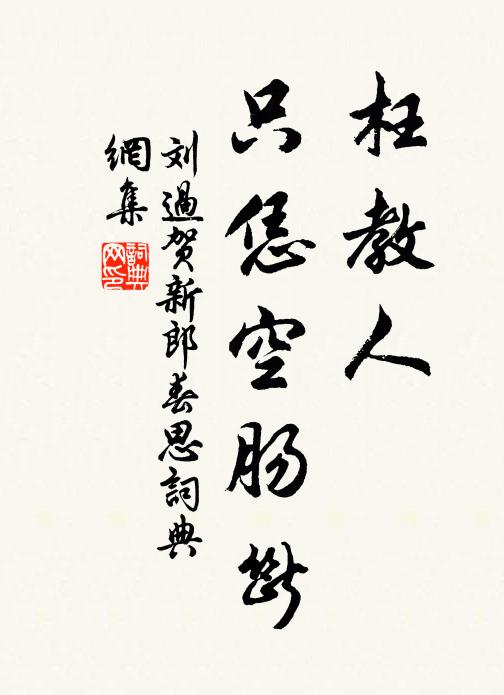 枉教人
只恁空肠斷
刘過贺新郎春思詞典
網集
詞典网印